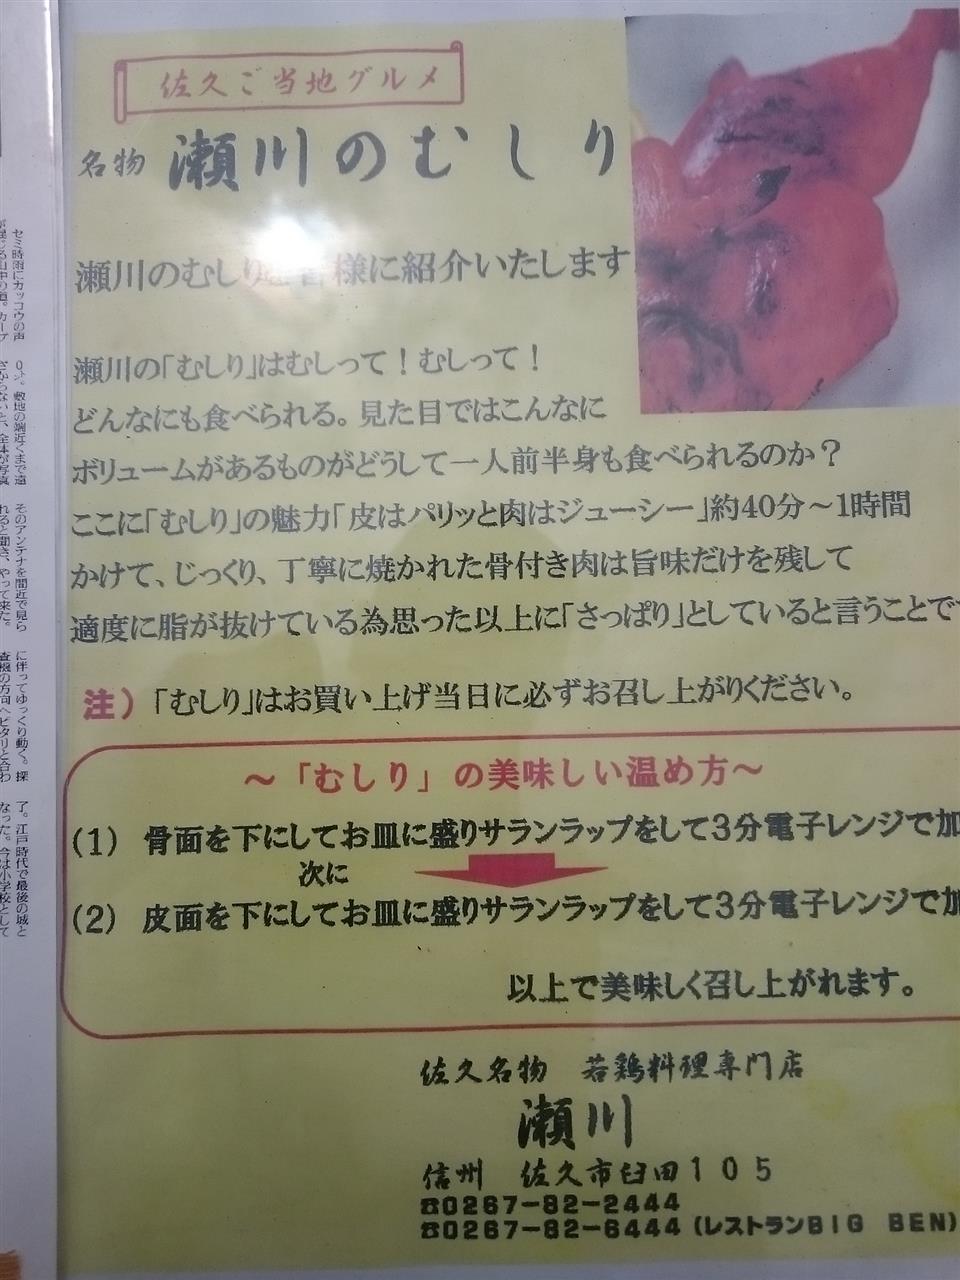 佐久ご当地グルメ
名物 瀬川のむしり
瀬川のむしり 皆様に紹介いたします
瀬川の「むしり」はむしって！むしって！
どんなにも食べられる。見た目ではこんなに
ボリュームがあるものがどうして一人前半身も食べられるのか？
ここに「むしり」の魅力「皮はパリッと肉はジューシー」約40分～1時間
かけて、じっくり、丁寧に焼かれた骨付き肉は旨味だけを残して
適度に脂が抜けている為思った以上に「さっぱり」としていると言うことで
注）「むしり」はお買い上げ当日に必ずお召し上がりください。
～「むしり」の美味しい温め方～
(1) 骨面を下にしてお皿に盛りサランラップをして３分電子レンジで加
次に
(2) 皮面を下にしてお皿に盛りサランラップをして３分電子レンジで加
以上で美味しく召し上がれます。
佐久名物 若鶏料理専門店
瀬川
信州 佐久市臼田１０５
☎0267-82-2444
☎0267-82-6444（レストランBIG BEN）
セミ時雨にカッコウの声
敷地の端近くまで遠
そのアンテナを間近で見ら
れると聞き、やって来た。
に伴ってゆっくり動く。探
査機の方向へピタリと合わ
了。江戸時代で最後の城と
なった。今は小学校として